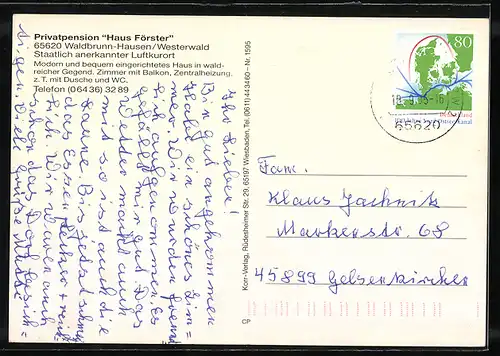 Privatpension "Haus Förster"
65620 Waldbrunn-Hausen/Westerwald
Staatlich anerkannter Luftkurort
Modern und bequem eingerichtetes Haus in wald-
reicher Gegend. Zimmer mit Balkon, Zentralheizung,
z. T. mit Dusche und WC.
Telefon (0 64 36) 32 89
Ihr Lieben!
Bin gut angekommen
Habe ein schönes Zim=
mer Wir wurden
gut aufgenommen. Es
gefällt mir gut. Das
Wetter macht auch
mit so ist auch die
Laune. Bis jetzt
das Essen lecker + reich=
lich. Wir waren auch
schon das Dorf besich=
tigen. Viele Grüße
Korr-Verlag, Rüdesheimer Str. 29, 65197 Wiesbaden, Tel. (0611) 443460 – Nr. 1595
80
Deutschland
65620
Fam.
Klaus Jachnik
Markenstr. 68
45899 Gelsenkirchen
CP